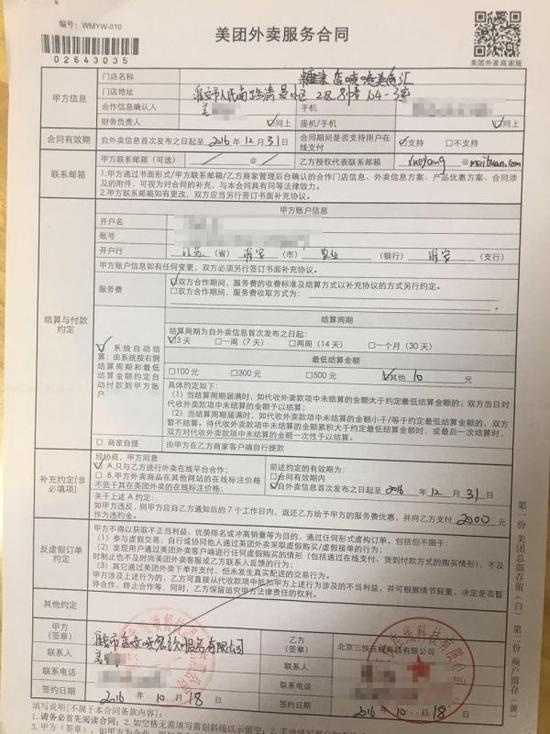 编号：WMYW-010
美团外卖服务合同
02643035
美团外卖商家版
甲方信息
门店名称
门店地址
淮安市人民南路清晏小区28幢64-3室
合作信息确认人
手机
财务负责人 ☑同上 座机/手机 ☑同上
合同有效期
自外卖信息首次发布之日起至 2016 年 12 月 31 日
合同期间是否支持用户在线支付
☑支持 □不支持
联系邮箱
甲方联系邮箱（可选） @
乙方授权代表联系邮箱 @ meituan.com
1.甲方通过书面形式/甲方联系邮箱/乙方商家管理后台确认的合作门店信息、外卖信息方案、产品优惠方案、合同涉及的附件，可视为对合同的补充，与本合同具有同等法律效力。
2.甲方联系邮箱如有更改，双方应当另行签署书面补充协议。
结算与付款约定
甲方账户信息
开户名
账号
开户行 江苏（省） 淮安（市） 农业（银行） 淮安（支行）
甲方账户信息如有任何变更，双方必须另行签订书面补充协议。
服务费
☑双方合作期间，服务费的收费标准及结算方式以补充协议的方式另行约定。
□双方合作期间，服务费收取方式为：
☑系统自动结算：由系统按右侧结算周期和最低结算金额约定自动付款到甲方账户
结算周期
结算周期为自外卖信息首次发布之日起：
☑3天 □一周（7天） □两周（14天） □一个月（30天）
最低结算金额
□100元 □300元 □500元 ☑其他 10 元
具体约定如下：
（1）当结算周期届满时，如代收外卖款项中未结算的金额大于约定最低结算金额的，双方当日对代收外卖款项中未结算的金额予以结算；
（2）当结算周期届满时，如代收外卖款项中未结算的金额小于/等于约定最低结算金额的，双方暂不结算。待代收外卖款项中未结算的金额累积大于约定最低结算金额时，或最后一次结算时，双方对代收外卖款项中未结算的金额一次性予以结算。
□ 商家自提
由甲方在乙方商家客户端自行提款
补充约定[非必填项]
经协商，甲方同意
☑A.只与乙方进行外卖在线平台合作；
□B.外卖商品在其他网站的在线标注价格不低于其在美团外卖的在线标注价格；
前述约定的有效期为：
□合同有效期内
☑自外卖信息首次发布之日起至 2016 年 12 月 31 日
关于上述A约定：
如甲方违反，则甲方应自乙方通知后的7个工作日内，返还乙方给予甲方的服务费优惠，并向乙方支付 2000 元作为违约金。
反虚假订单约定
甲方不得以获取不正当利益、优势排名或冲高销量等为目的，通过任何形式虚构订单，包括但不限于：
（1）参与虚假交易，自行或协同他人通过美团外卖采取虚假购买/虚假接单的行为；
（3）其它通过美团外卖下单并支付，但未发生真实配送的交易行为。
其他约定
甲方（签章）
乙方（签章） 北京三快在线科技有限公司
联系人
联系人
联系电话
联系电话
签约日期 2016 年 10 月 18 日
签约日期 2016 年 10 月 18 日
填写说明[不属于本合同条款内容]
第一份 美团总部存留（白） 第二份 商户留存（黄）